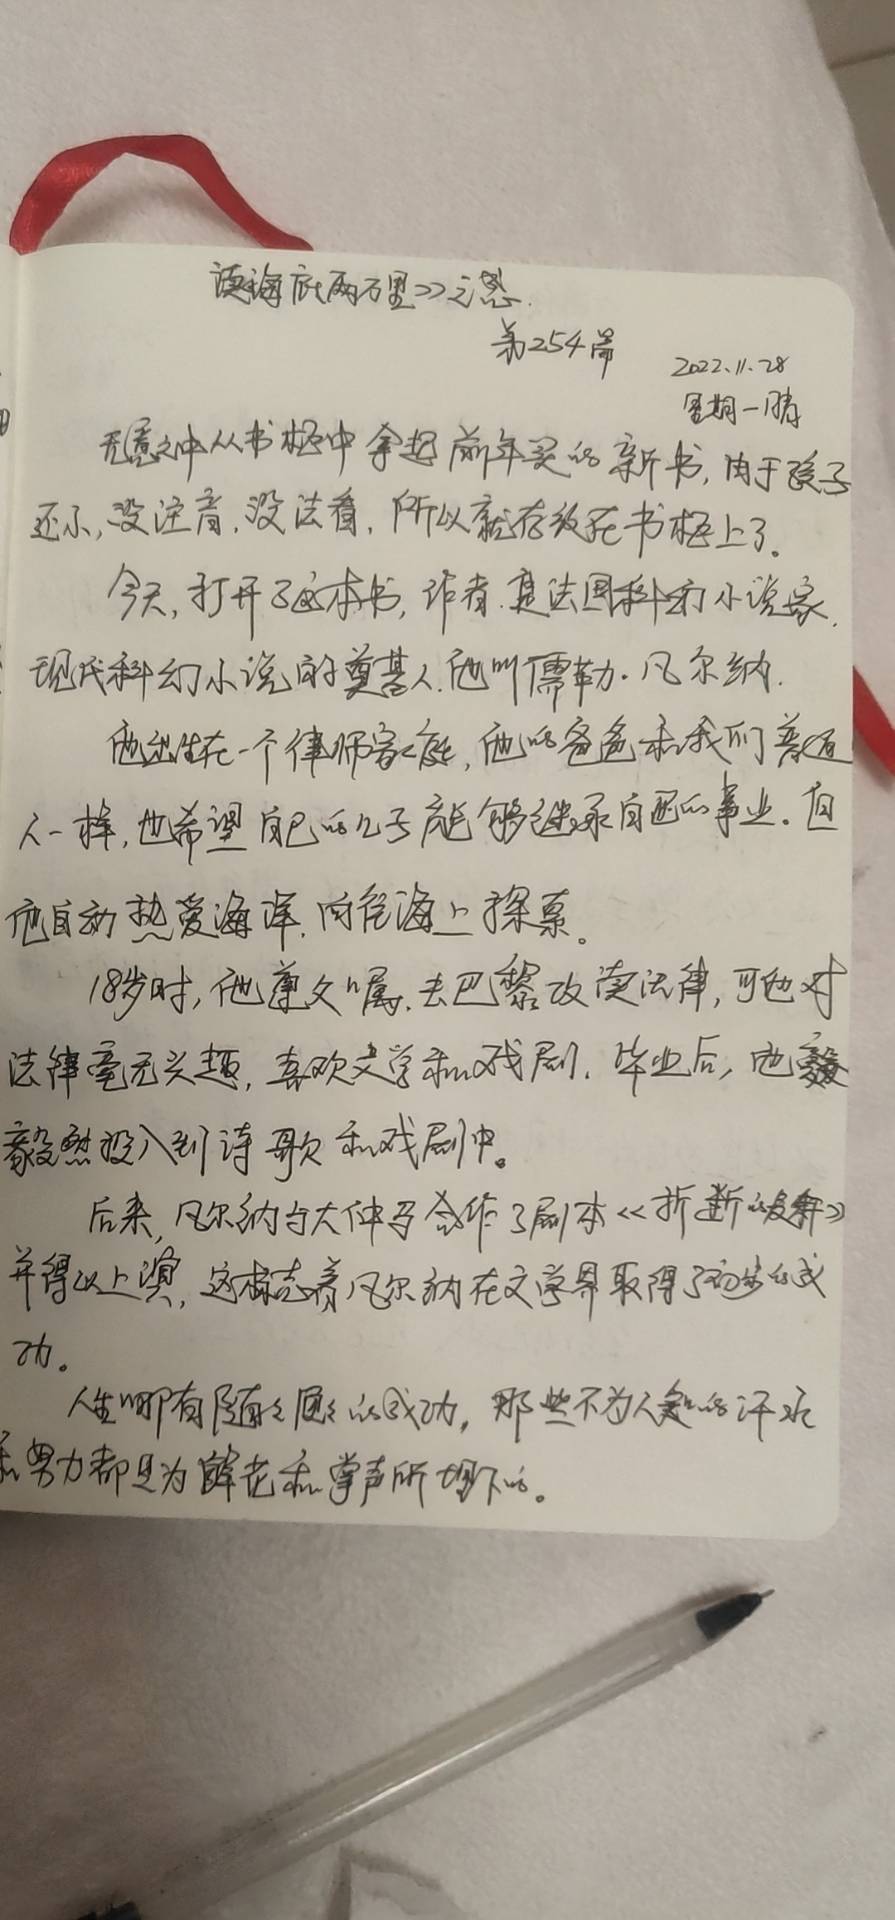 读海底两万里》之感.
第254篇
2022.11.28
星期一晴
无意之中从书柜中拿起前年买的新书,由于孩子
还小,没注音,没法看,所以就存放在书柜上了。
今天,打开了这本书,作者是法国科幻小说家,
现代科幻小说的奠基人.他叫儒勒·凡尔纳.
他出生在一个律师家庭,他的爸爸和我们普通
人一样,也希望自己的儿子能够继承自己的事业。但
他自幼热爱海洋,向往海上探索。
18岁时,他遵父嘱,去巴黎攻读法律,可他对
法律毫无兴趣,喜欢文学和戏剧.毕业后,他
毅然投入到诗歌和戏剧中。
后来,凡尔纳与大仲马合作了剧本《折断的麦秆》
并得以上演,这标志着凡尔纳在文学界取得了初步的成
功。
人生哪有随随便便的成功,那些不为人知的汗水
和努力都是为鲜花和掌声所埋下的。